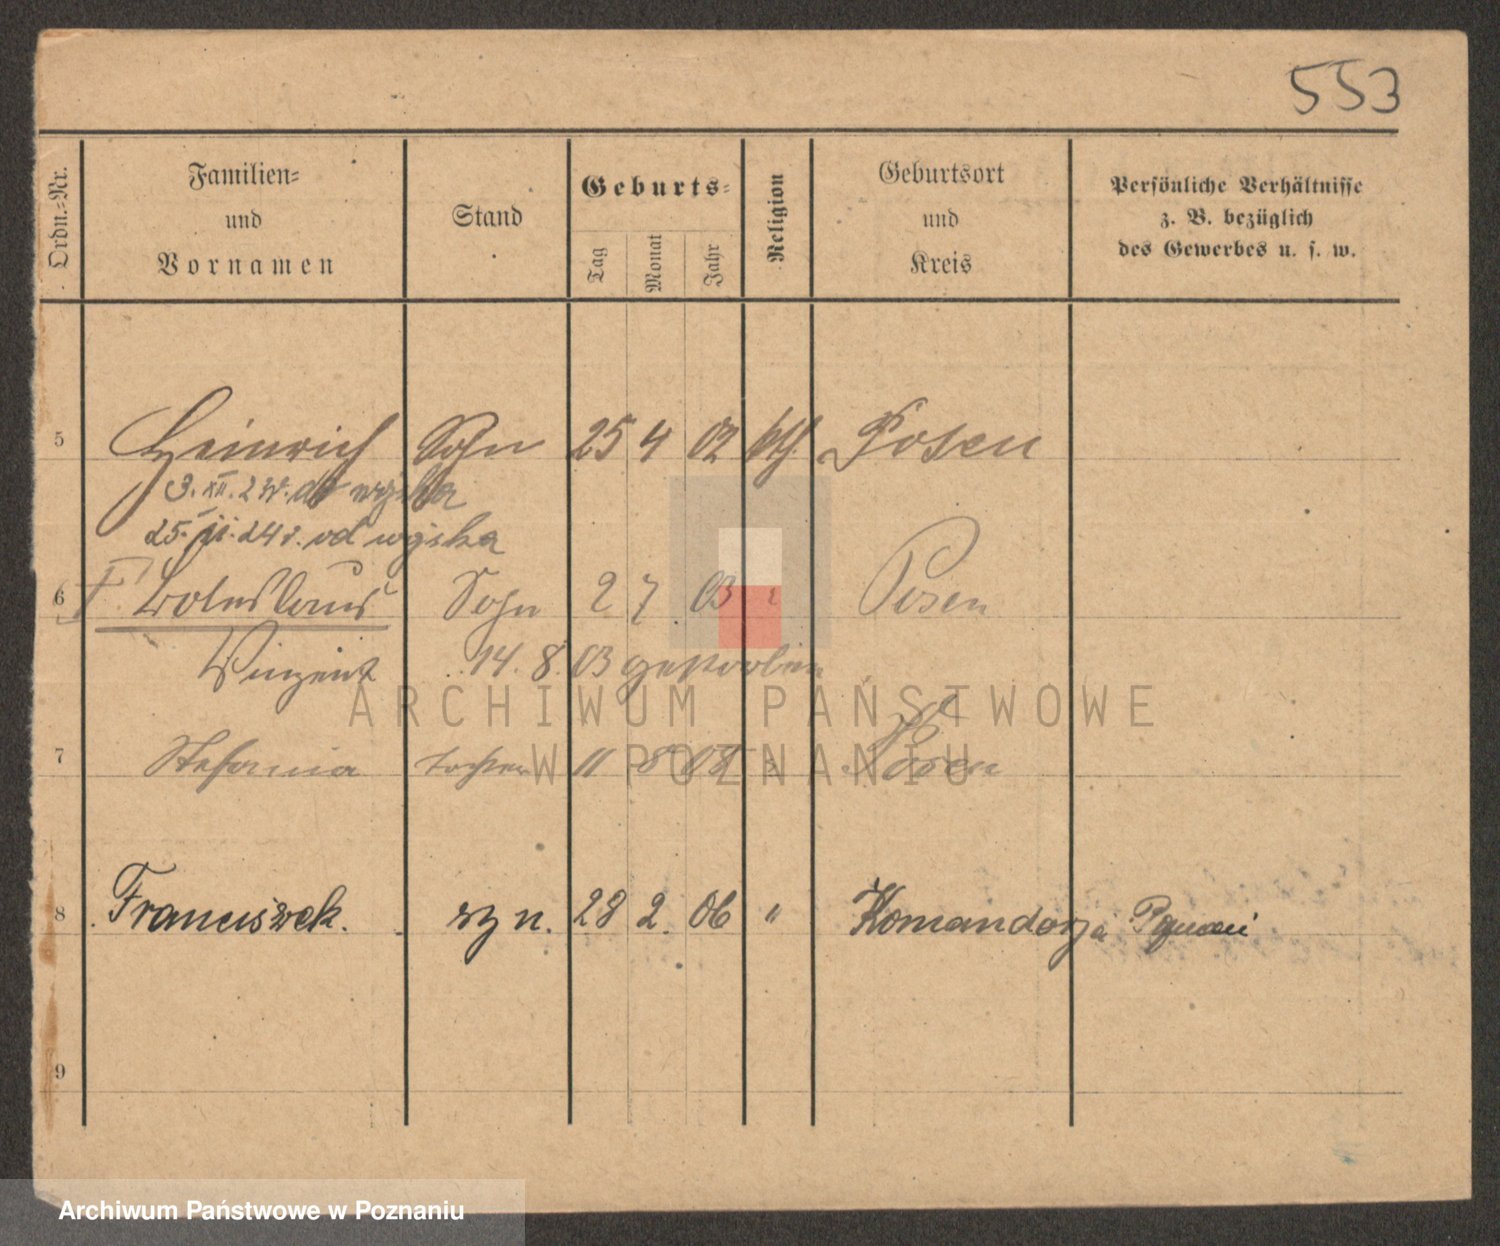 553
Ordn.-Nr.
Familien-
und
Vornamen
Stand
Geburts-
Tag Monat Jahr
Religion
Geburtsort
und
Kreis
Persönliche Verhältnisse
z. B. bezüglich
des Gewerbes u. s. w.
5 Heinrich Sohn 25 4 02 kth. Posen
3. XII. 2 do wojska
25. II. 24 r. od wojska
6 Boleslaus Sohn 2 7 03 Posen
Vinzent 14. 8. 03 gestorben
ARCHIWUM PAŃSTWOWE
W POZNANIU
7 Stefania Tochter 11 8 08 Posen
8 Franciszek. syn. 28 2. 06 " Komandorja Poznań
9
Archiwum Państwowe w Poznaniu